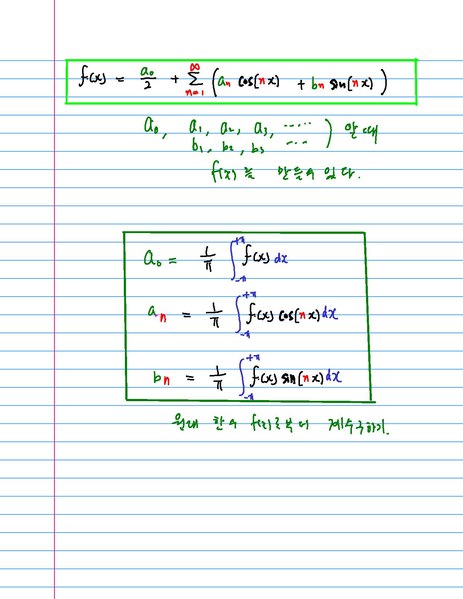 f(x) = a₀/2 + ∑_{n=1}^{∞} (aₙ cos(nx) + bₙ sin(nx))
a₀, a₁, a₂, a₃, ..... ) 알 때
b₁, b₂, b₃ ...
f(x)를 만들 수 있다.
a₀ = 1/π ∫_{-π}^{+π} f(x) dx
aₙ = 1/π ∫_{-π}^{+π} f(x) cos(nx) dx
bₙ = 1/π ∫_{-π}^{+π} f(x) sin(nx) dx
원래 함수 f(x)로부터 계수구하기.